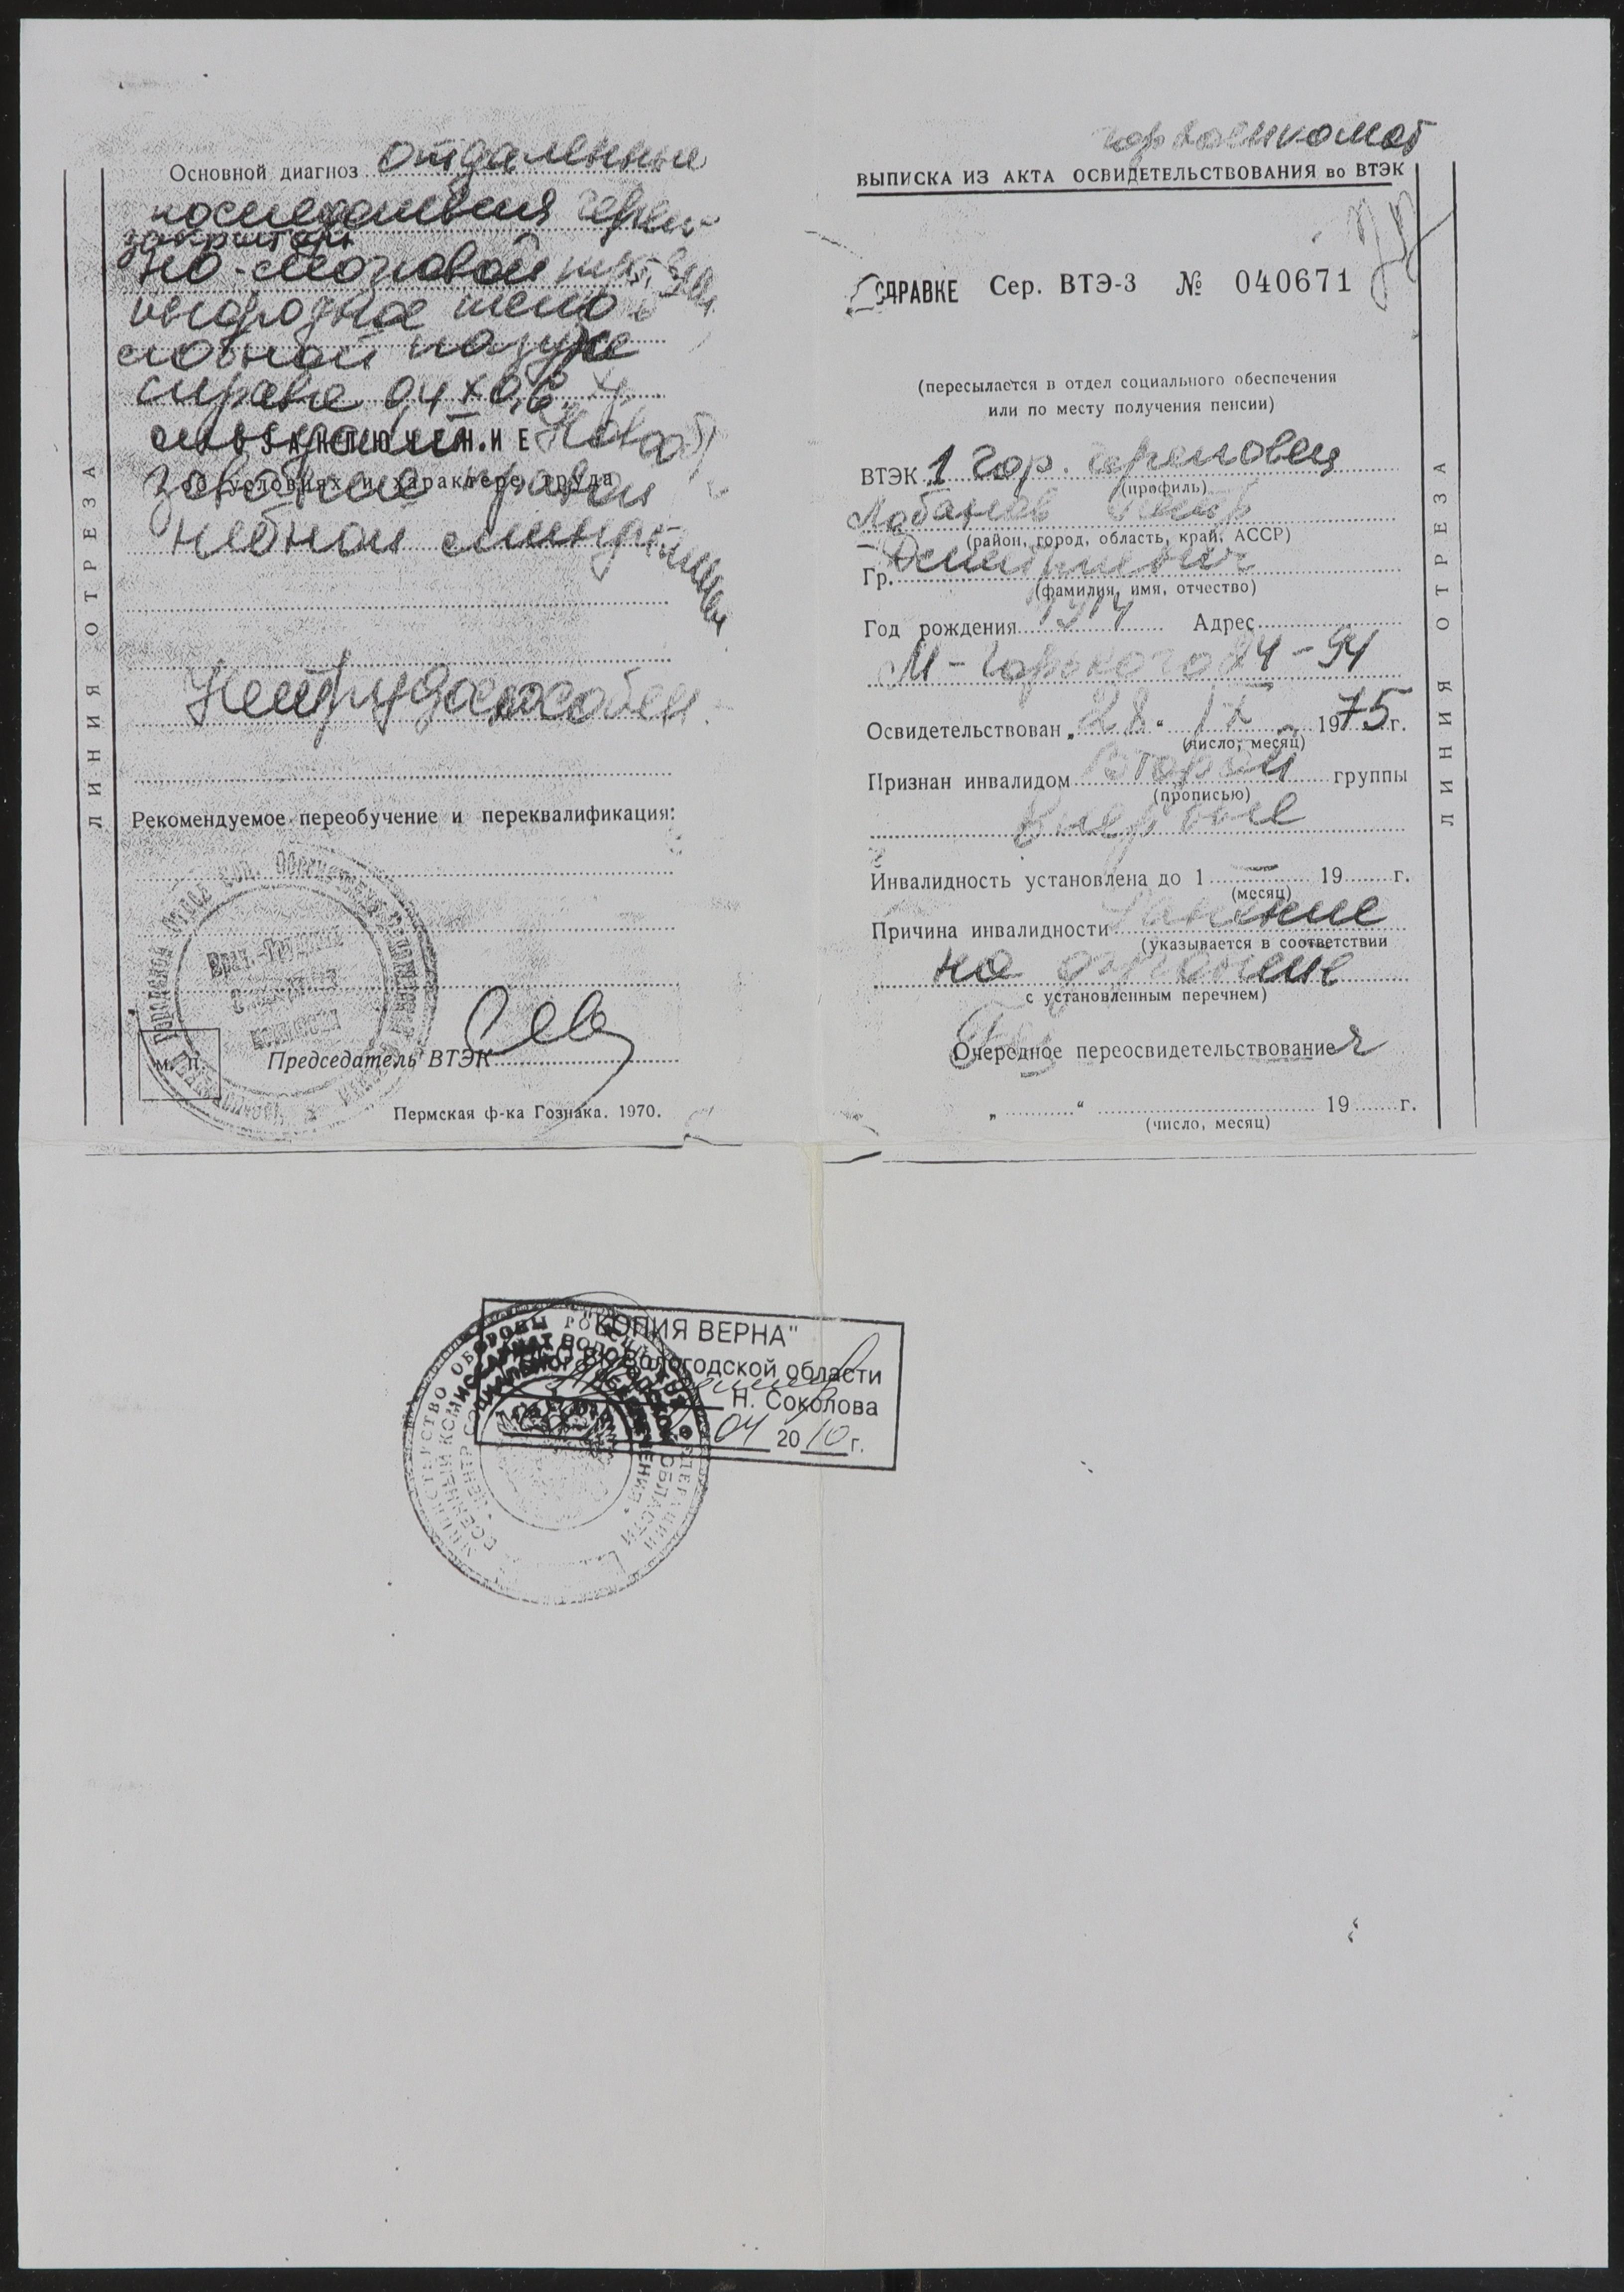 Основной диагноз отдаленные
последствия череп-
закрытой
но-мозговой
инородное тело в
лобной пазухе
справа 0,4 х 0,6
ЗАКЛЮЧЕНИЕ Новооб
об условиях и характере труда
небной миндалины
Нетрудоспособен.
Рекомендуемое переобучение и переквалификация:
М. П.
Председатель ВТЭК
Пермская ф-ка Гознака. 1970.
ЛИНИЯ ОТРЕЗА
горвоенкомат
ВЫПИСКА ИЗ АКТА ОСВИДЕТЕЛЬСТВОВАНИЯ во ВТЭК
СПРАВКЕ Сер. ВТЭ-3 № 040671
(пересылается в отдел социального обеспечения
или по месту получения пенсии)
ВТЭК 1 гор. Череповец
(профиль)
Лобанов
(район, город, область, край, АССР)
Дмитриевич
Гр.
(фамилия, имя, отчество)
Год рождения 1914 Адрес
М-Горького 24-94
Освидетельствован „28“ IX 1975 г.
(число, месяц)
Признан инвалидом второй группы
(прописью)
впервые
Инвалидность установлена до 1 — 19 г.
(месяц)
Причина инвалидности ранение
(указывается в соответствии
на фронте
с установленным перечнем)
Очередное переосвидетельствование
„ “ 19 г.
(число, месяц)
ЛИНИЯ ОТРЕЗА
"КОПИЯ ВЕРНА"
Вологодской области
Н. Соколова
04 2010 г.